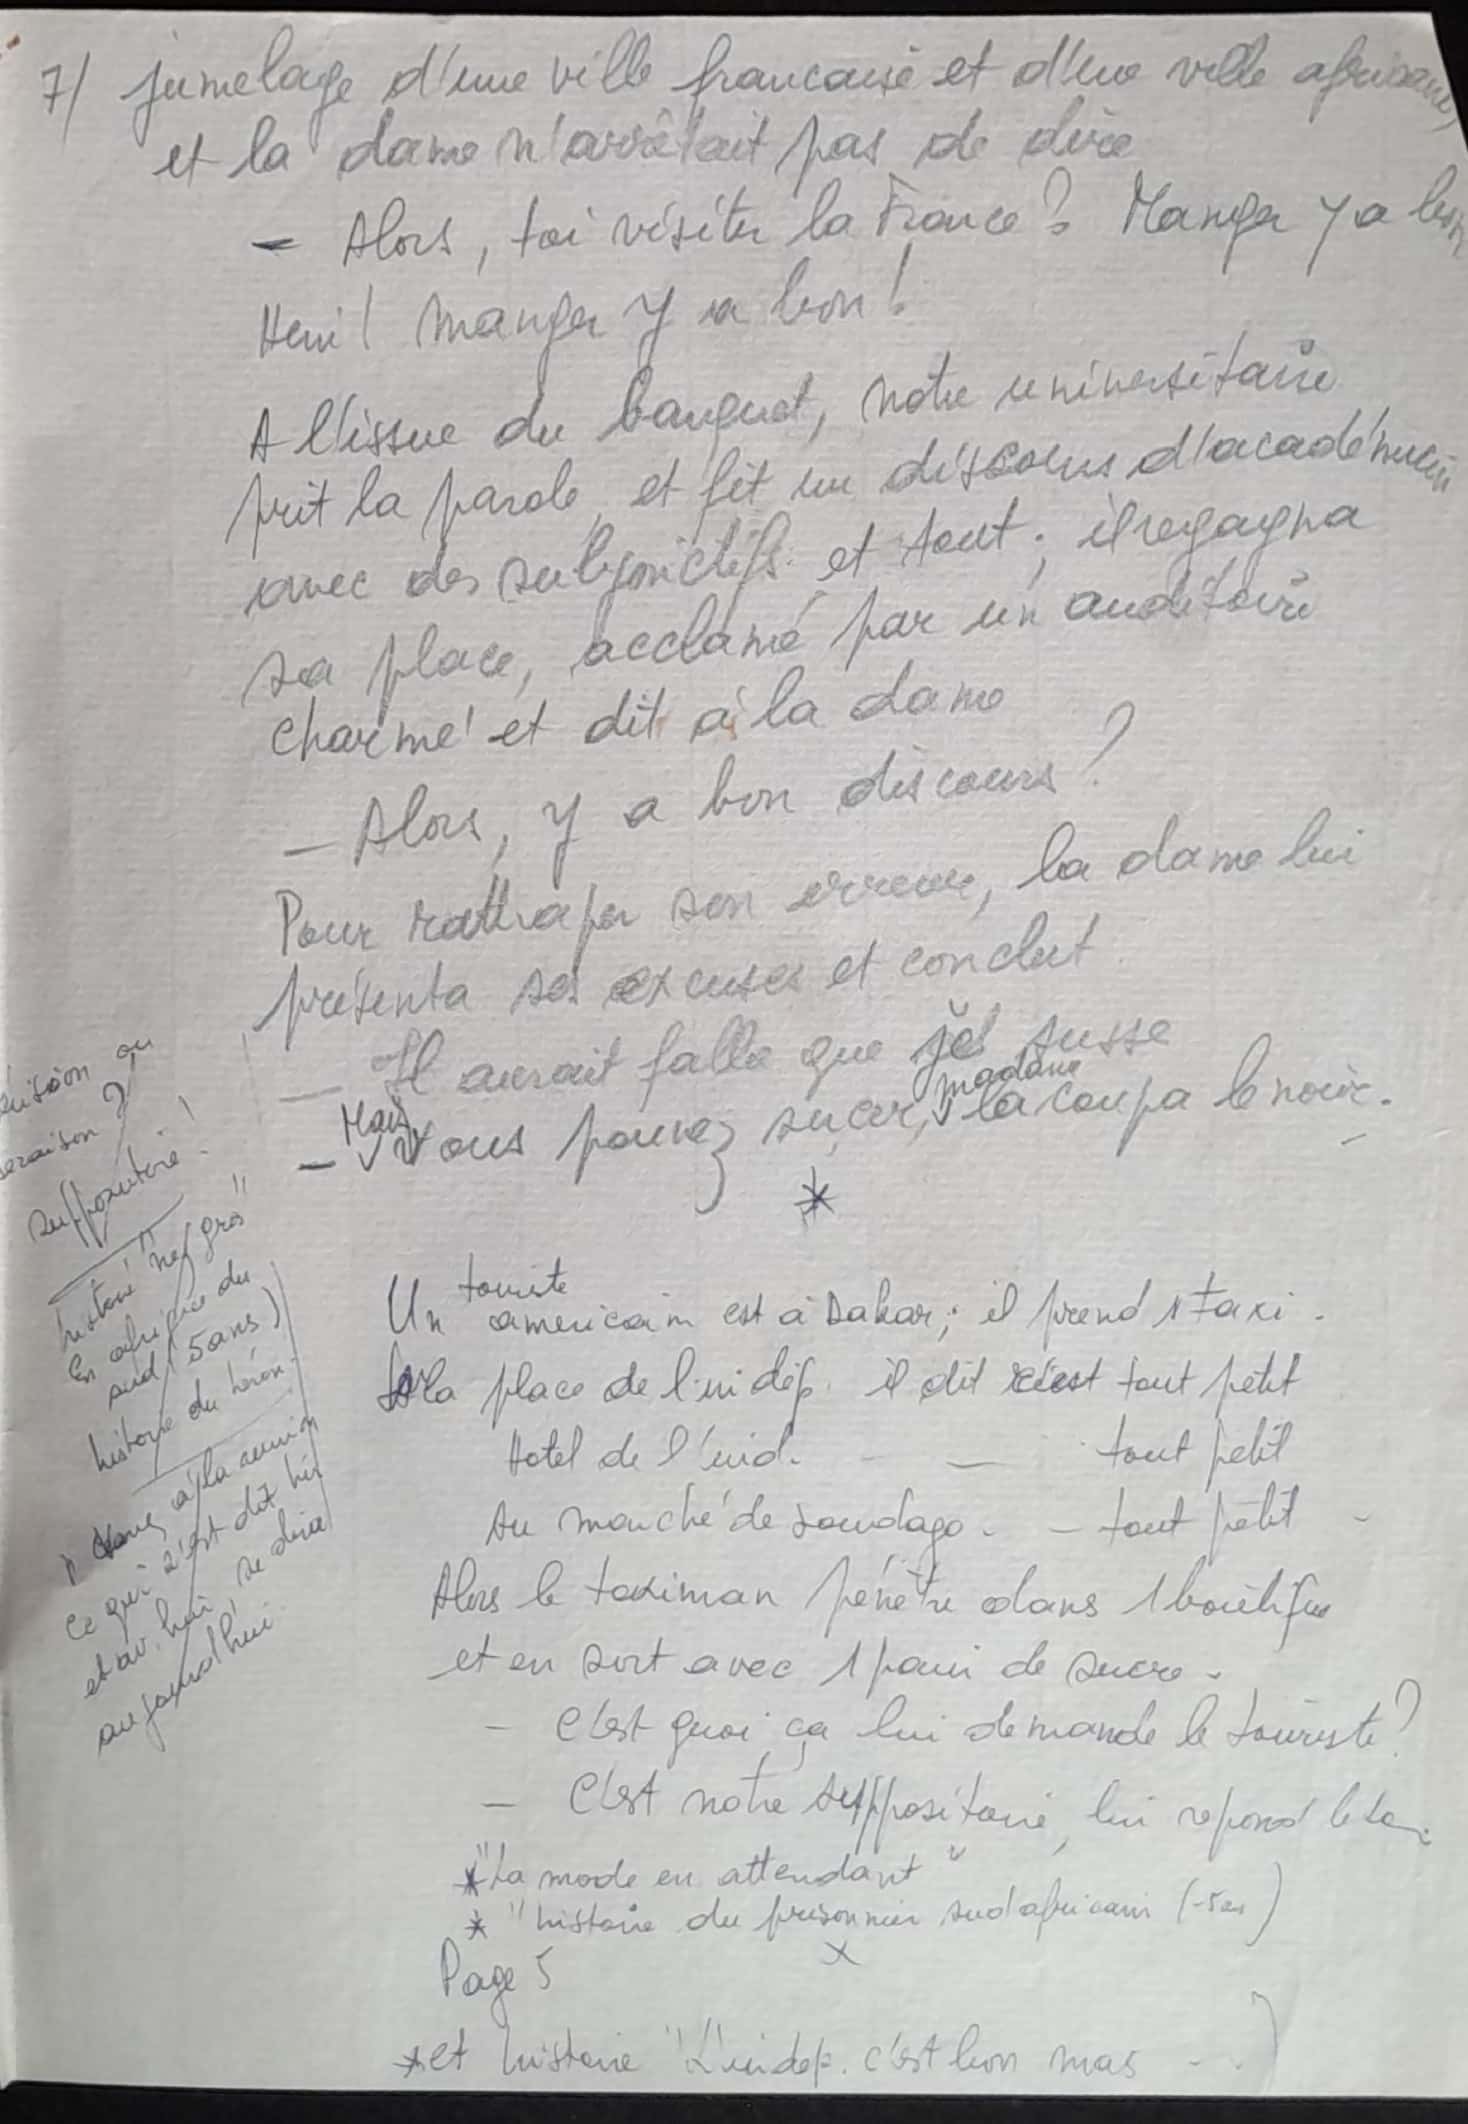 7/ jumelage d'une ville française et d'une ville africaine,
et la dame n'arrêtait pas de dire
- Alors, toi visiter la France ? Manger y a bon
Hein ! manger y a bon !
A l'issue du banquet, notre universitaire
prit la parole, et fit un discours d'académicien
avec des subjonctifs et tout ; il regagna
sa place, acclamé par un auditoire
charmé et dit à la dame
- Alors, y a bon discours ?
Pour rattraper son erreur, la dame lui
présenta ses excuses et conclut
- Il aurait fallu que je susse
- Mais vous pouvez sucer, madame la coupa le noir.
*
Un touriste americain est à Dakar ; il prend 1 taxi.
Sur la place de l'indép. il dit c'est tout petit
Hotel de l'ind. - - tout petit
Au marché de Sandaga - - tout petit -
Alors le taximan pénètre dans 1 boutique
et en sort avec 1 pain de sucre.
- C'est quoi ça lui demande le touriste ?
- C'est notre suppositoire, lui repond le
* "La mode en attendant"
* "histoire du prisonnier sudafricain (-5 ans)
x
Page 5
* et histoire "L'indép. c'est bon mas - -)
ou
raison ?
suppositoire !
histoire "nègres"
en afrique du
sud (5 ans)
histoire du
à la réunion
ce qui s'est dit hier
et av. hier, se dira
aujourd'hui